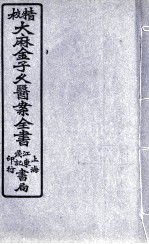 精校
大麻金子久醫案全書
上海
江東茂記書局
印行